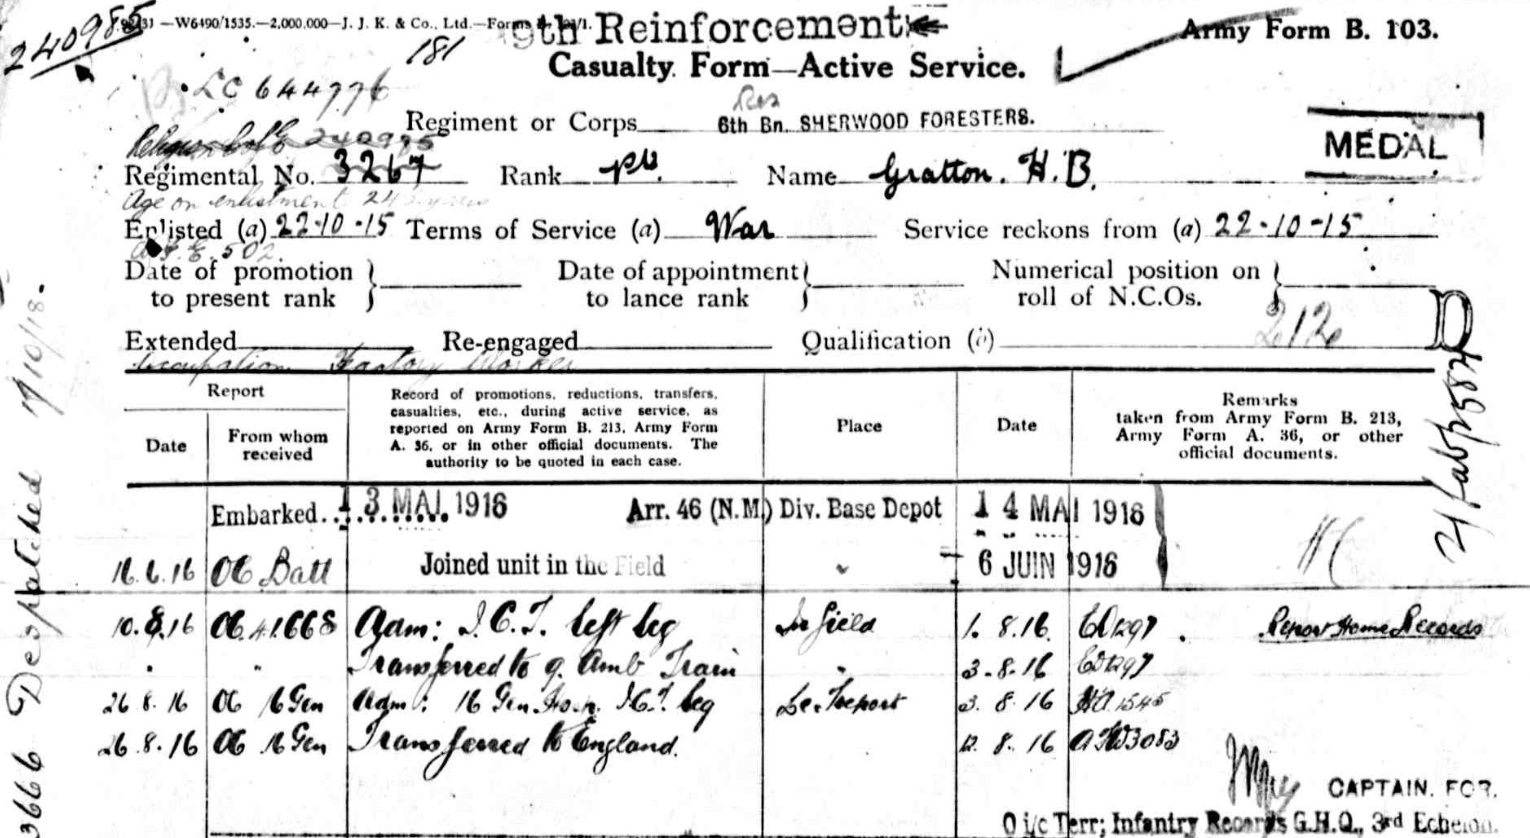 240985
—W6490/1535.—2,000,000—J. J. K. & Co., Ltd.—Forms
9th Reinforcement
Army Form B. 103.
181
Casualty Form—Active Service.
LC 644776
Res
Regiment or Corps 6th Bn. SHERWOOD FORESTERS.
MEDAL
Religion CofE 240985
Regimental No. 3267 Rank Pte. Name Gratton. H.B.
Age on enlistment 24 years
Enlisted (a) 22-10-15 Terms of Service (a) War Service reckons from (a) 22-10-15
A.F.E. 502.
Date of promotion to present rank
Date of appointment to lance rank
Numerical position on roll of N.C.Os.
Extended Re-engaged Qualification (b)
212
D
Occupation Factory Worker
Report
Date
From whom received
Record of promotions, reductions, transfers, casualties, etc., during active service, as reported on Army Form B. 213, Army Form A. 36, or in other official documents. The authority to be quoted in each case.
Place
Date
Remarks
taken from Army Form B. 213, Army Form A. 36, or other official documents.
Embarked 13 MAI 1916 Arr. 46 (N.M.) Div. Base Depot 14 MAI 1916
16.6.16 OC Batt Joined unit in the Field " 6 JUIN 1916
10.8.16 OC 41668 Adm: I.C.T. left leg In field 1.8.16 ED1297. Report Home Records
" " Transferred to 9 Amb Train " 3.8.16 ED1297
26 8.16 OC 16 Gen Adm: 16 Gen. Hosp. I.C.T. leg Le Treport 3 8 16 HA 1545
26.8.16 OC 16 Gen Transferred to England. 12.8.16 A W3083
CAPTAIN. FOR.
O i/c Terr; Infantry Records G.H.Q., 3rd Echelon.
3666 Despatched 17/10/18.